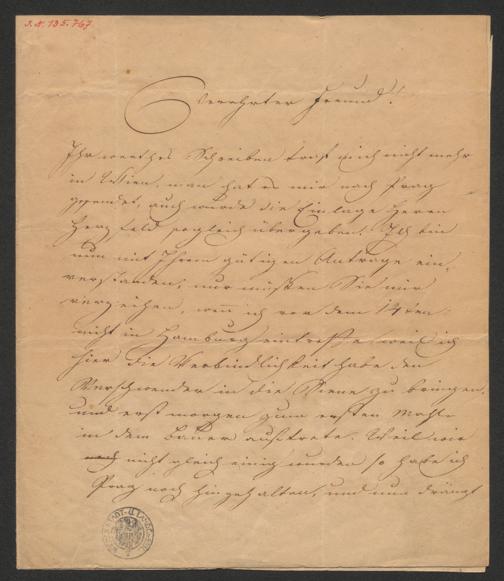 I.N. 195.767
Verehrter Freund!
Ihr werthes Schreiben traf mich nicht mehr
in Wien, man hat es mir nach Prag
gesendet, auch wurde die Einlage Herrn
Herzfeld sogleich übergeben. Ich bin
nun mit Ihrem gütigen Antrage ein-
verstanden, nur müssen Sie mir
verzeihen, wenn ich vor dem 14ten
nicht in Hamburg eintreffe, weil ich
hier die Verbindlichkeit habe, den
Verschwender in die Scene zu bringen,
und erst morgen zum ersten Mahle
in dem Bauer auftrete. Weil wir
noch nicht gleich einig wurden so habe ich
Prag noch hingehalten, und nun drängt